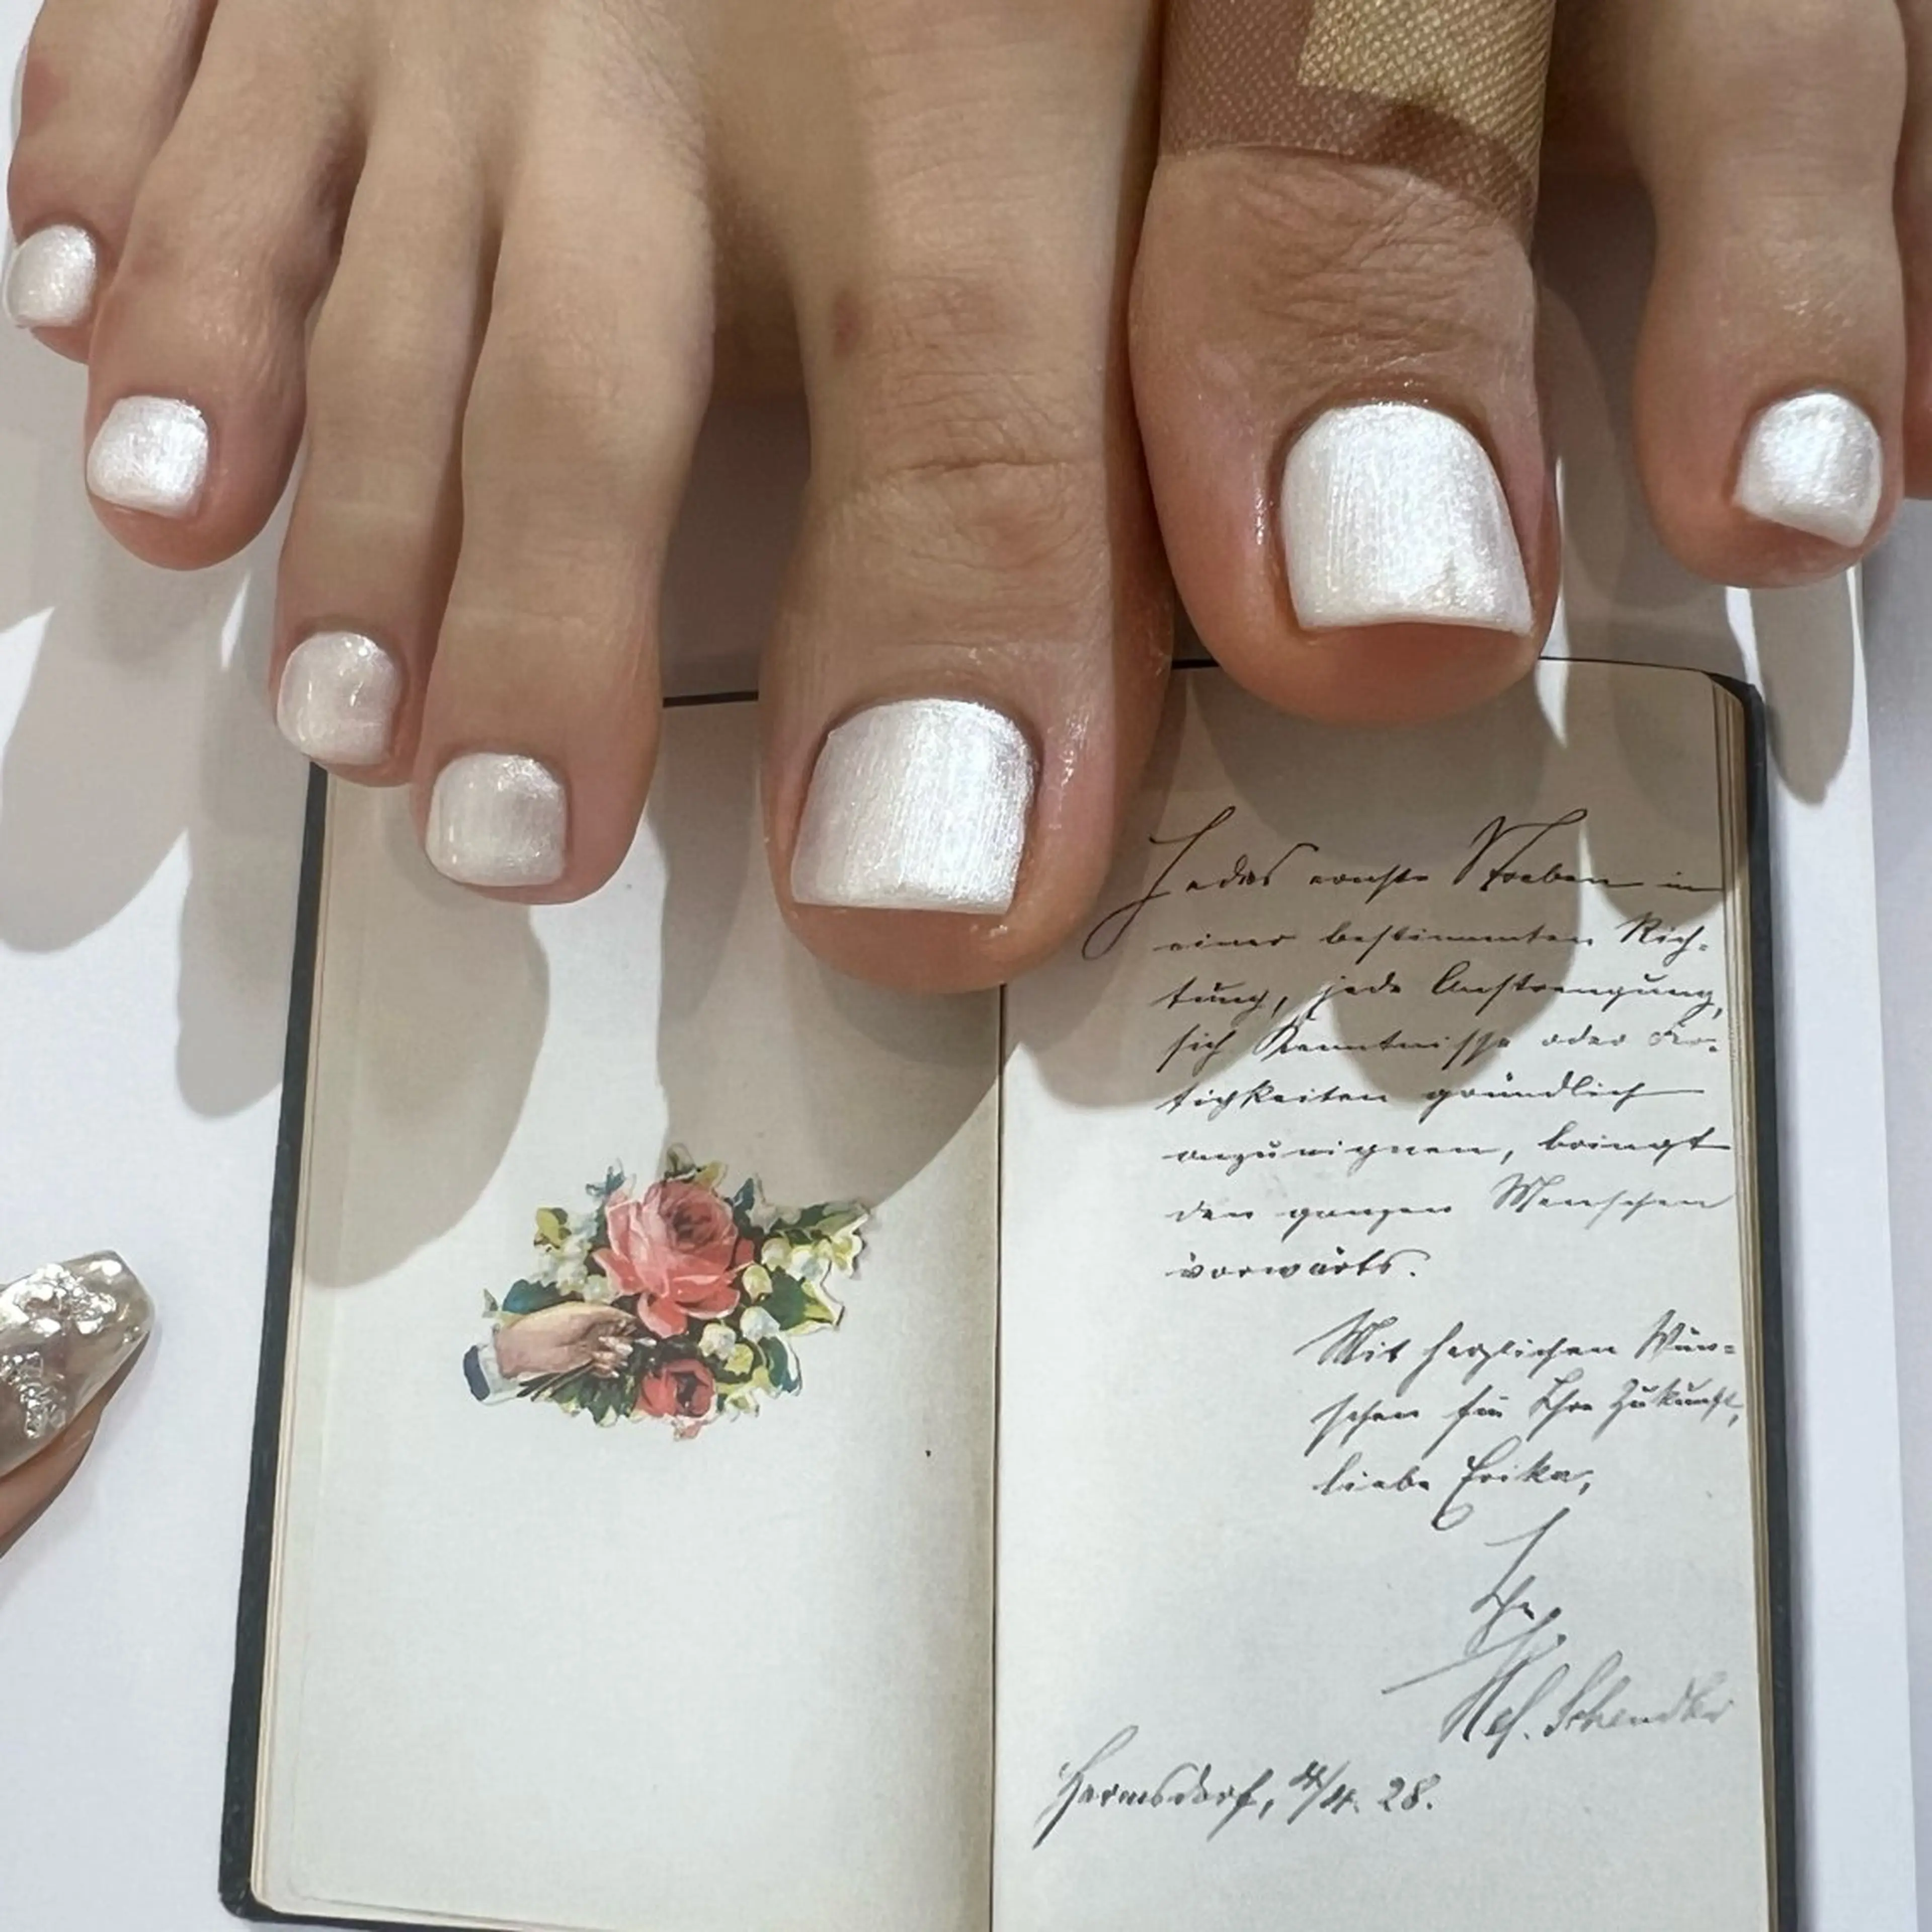 Jedes ernste Streben in
einer bestimmten Rich-
tung, jede Anstrengung,
sich Kenntnisse oder Fer-
tigkeiten gründlich
anzueignen, bringt
den ganzen Menschen
vorwärts.
Mit herzlichen Wün-
schen für Ihre Zukunft,
liebe Erika,
Ihr
Schendler
Hermsdorf, 4. 28.